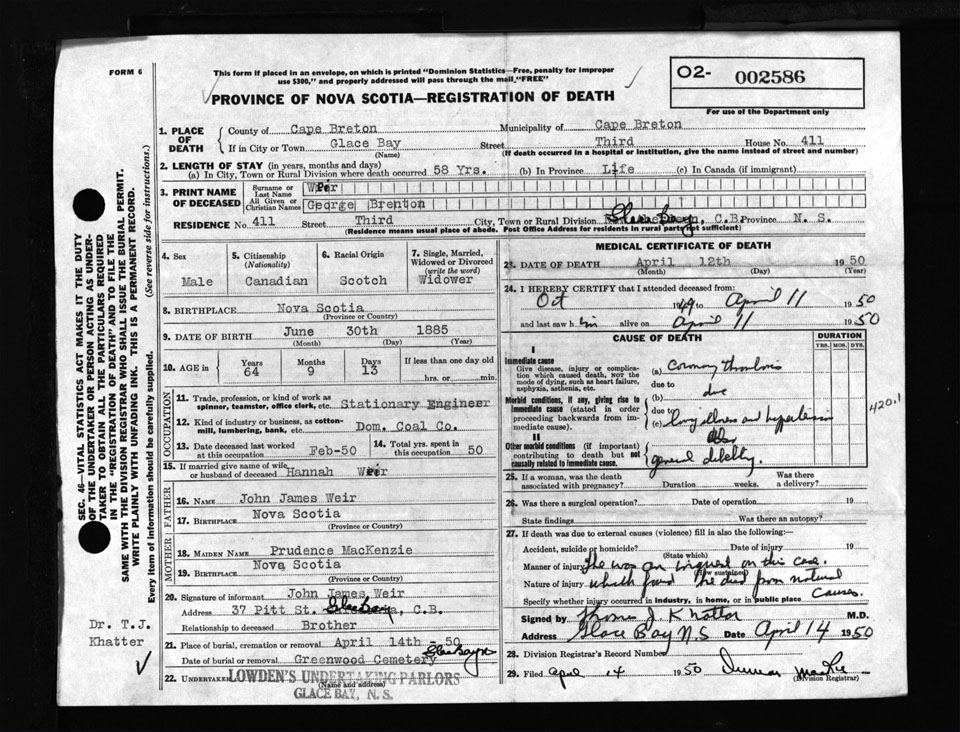 FORM 6
This form if placed in an envelope, on which is printed "Dominion Statistics—Free, penalty for improper
use $300," and properly addressed will pass through the mail "FREE"
O2- 002586
For use of the Department only
PROVINCE OF NOVA SCOTIA—REGISTRATION OF DEATH
1. PLACE OF DEATH
County of Cape Breton Municipality of Cape Breton
If in City or Town Glace Bay Street Third House No. 411
(Name) (If death occurred in a hospital or institution, give the name instead of street and number)
2. LENGTH OF STAY (in years, months and days)
(a) In City, Town or Rural Division where death occurred 58 Yrs. (b) In Province Life (c) In Canada (if immigrant)
3. PRINT NAME OF DECEASED
Surname or Last Name Weir
All Given or Christian Names George Brenton
RESIDENCE No. 411 Street Third City, Town or Rural Division Glace Bay, C.B. Province N. S.
(Residence means usual place of abode. Post Office Address for residents in rural parts not sufficient)
4. Sex
Male
5. Citizenship
(Nationality)
Canadian
6. Racial Origin
Scotch
7. Single, Married,
Widowed or Divorced
(write the word)
Widower
8. BIRTHPLACE Nova Scotia
(Province or Country)
9. DATE OF BIRTH June 30th 1885
(Month) (Day) (Year)
10. AGE in Years Months Days If less than one day old
64 9 13 hrs. or min.
OCCUPATION
11. Trade, profession, or kind of work as
spinner, teamster, office clerk, etc. Stationary Engineer
12. Kind of industry or business, as cotton-
mill, lumbering, bank, etc. Dom. Coal Co.
13. Date deceased last worked
at this occupation Feb-50
14. Total yrs. spent in
this occupation 50
15. If married give name of wife
or husband of deceased Hannah Weir
FATHER
16. NAME John James Weir
17. BIRTHPLACE Nova Scotia
(Province or Country)
MOTHER
18. MAIDEN NAME Prudence MacKenzie
19. BIRTHPLACE Nova Scotia
(Province or Country)
20. Signature of informant John James Weir
Address 37 Pitt St. Glace Bay, C.B.
Relationship to deceased Brother
21. Place of burial, cremation or removal April 14th - 50
Glace Bay N.S
Date of burial or removal Greenwood Cemetery
22. UNDERTAKER LOWDEN'S UNDERTAKING PARLORS
(Name and address)
GLACE BAY, N. S.
MEDICAL CERTIFICATE OF DEATH
23. DATE OF DEATH April 12th 1950
(Month) (Day) (Year)
24. I HEREBY CERTIFY that I attended deceased from
Oct 1949 to April 11 1950
and last saw him alive on April 11 1950
CAUSE OF DEATH
DURATION
YRS. MOS. DYS.
I
Immediate cause
Give disease, injury or complica-
tion which caused death, NOT the
mode of dying, such as heart failure,
asphyxia, asthenia, etc.
(a) Coronary thrombosis
due to
Morbid conditions, if any, giving rise to
immediate cause (stated in order
proceeding backwards from im-
mediate cause).
(b) due
due to
(c) long illness and hypertension
420.1
II
Other morbid conditions (if important)
contributing to death but not
causally related to immediate cause.
also
general debility.
25. If a woman, was the death
associated with pregnancy? Duration weeks. Was there
a delivery?
26. Was there a surgical operation? Date of operation 19
State findings Was there an autopsy?
27. If death was due to external causes (violence) fill in also the following:—
Accident, suicide or homicide? Date of injury 19
(State which)
Manner of injury There was an inquest on this case.
(How sustained)
Nature of injury which found he died from natural
causes.
Specify whether injury occurred in industry, in home, or in public place
Signed by Thomas J. Khattar M.D.
Address Glace Bay N.S Date April 14 1950
28. Division Registrar's Record Number
29. Filed April 14 1950 Duncan MacRae
(Division Registrar)
SEC. 46—VITAL STATISTICS ACT MAKES IT THE DUTY
OF THE UNDERTAKER OR PERSON ACTING AS UNDER-
TAKER TO OBTAIN ALL THE PARTICULARS REQUIRED
IN THE "REGISTRATION OF DEATH" AND TO FILE THE
SAME WITH THE DIVISION REGISTRAR WHO SHALL ISSUE THE BURIAL PERMIT.
WRITE PLAINLY WITH UNFADING INK. THIS IS A PERMANENT RECORD.
Every item of information should be carefully supplied. (See reverse side for instructions.)
Dr. T.J.
Khatter